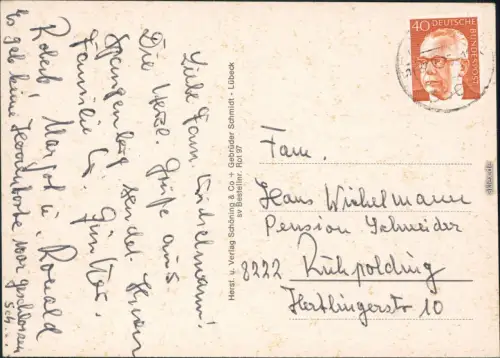 Liebe Fam. Winkelmann!
Die Herzl. Grüße aus
Spangenberg sendet Ihnen
Familie G.
Günther,
Robert Margot u. Ronald
Es gab keine geschlossen
Herst. u. Verlag Schöning & Co + Gebrüder Schmidt - Lübeck
sv Bestellnr. Rot 97
40 DEUTSCHE BUNDESPOST
Fam.
Hans Winkelmann
Pension Schneider
8222 Ruhpolding
Hertlingerstr 10